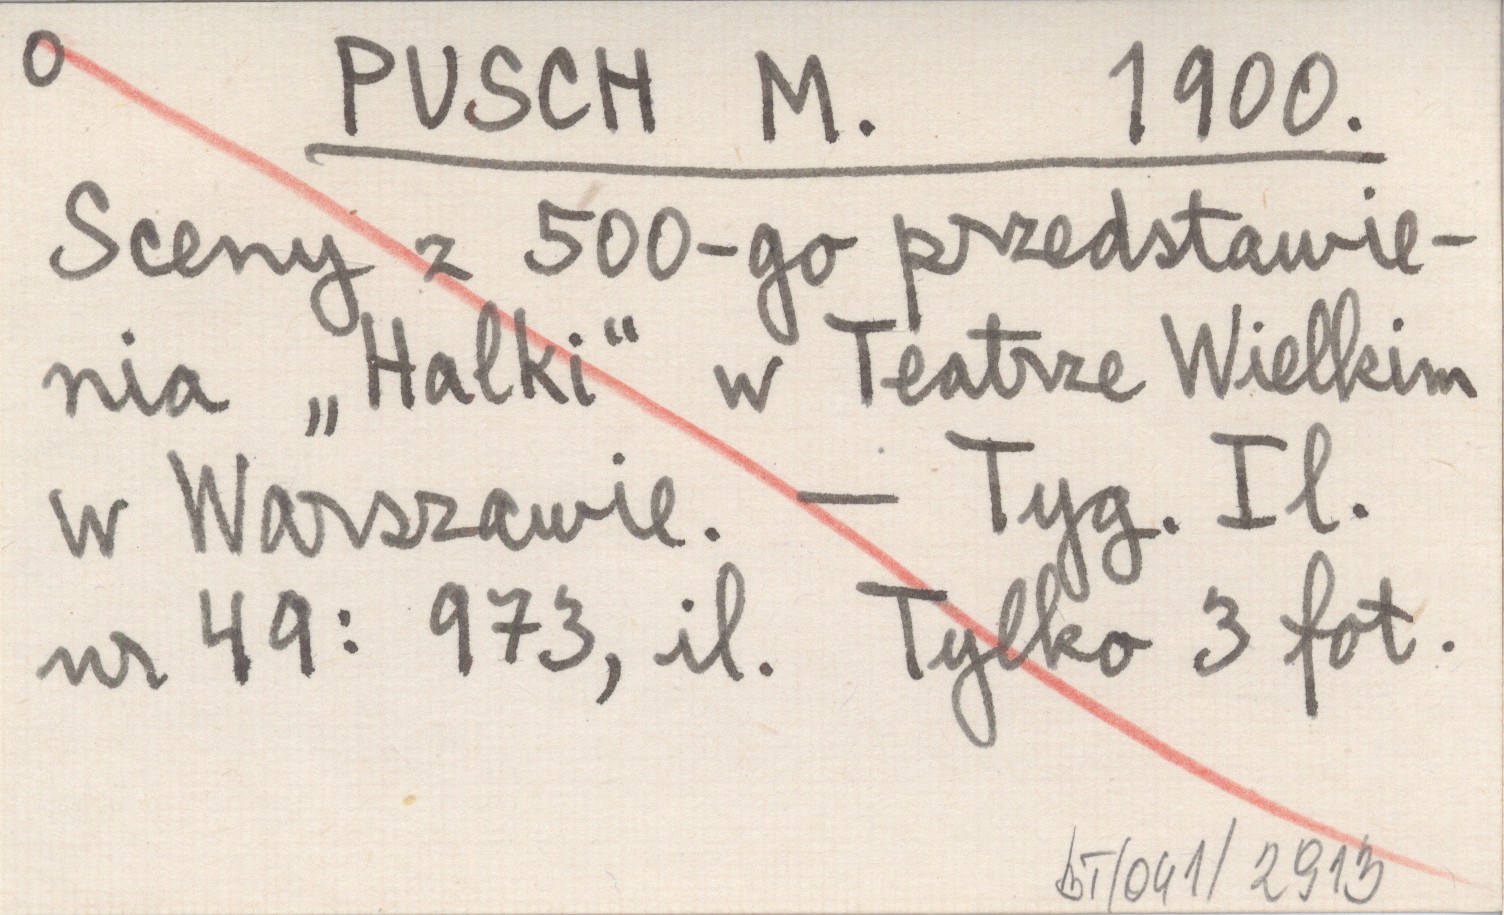 O PUSCH M. 1900.
Sceny z 500-go przedstawie-
nia „Halki" w Teatrze Wielkim
w Warszawie. — Tyg. Il.
nr 49: 973, il. Tylko 3 fot.
/041/2913